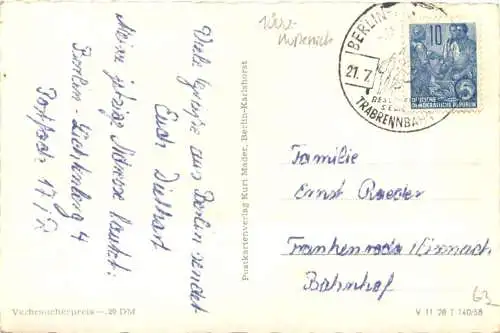 Viele Grüße aus Berlin sendet
Euch Diethart
Meine jetzige Adresse lautet:
Berlin Lichtenberg 4
Postfach 17
Postkartenverlag Kurt Mader, Berlin-Karlshorst
BERLIN-
21. 7.
TRABRENNBAHN
10
DEUTSCHE
DEMOKRATISCHE REPUBLIK
5
Familie
Ernst Roeder
Frankenroda/Eisenach
Bahnhof
63
Verbraucherpreis —.20 DM
V 11 28 T 740/58